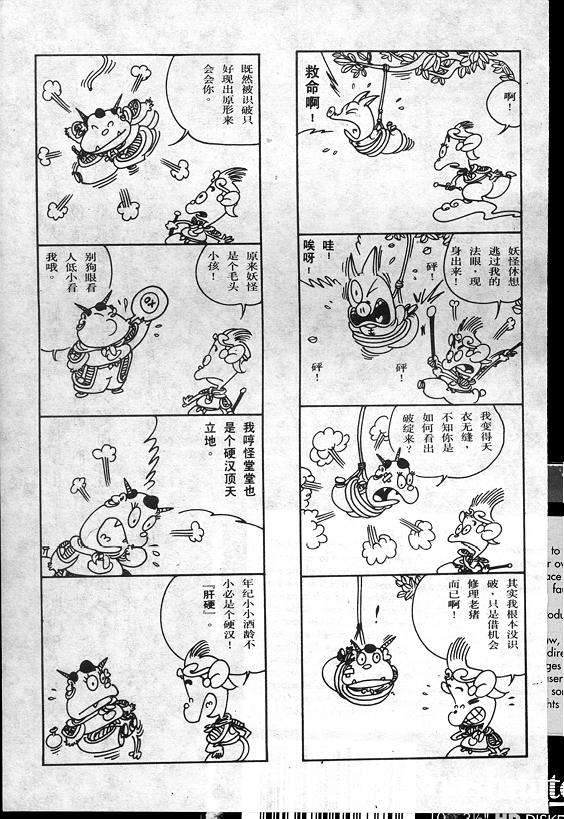 啊！
救命啊！
妖怪休想
逃过我的
法眼，现
身出来！
砰！
哇！
唉呀！
砰！
砰！
我变得天
衣无缝，
不知你是
如何看出
破绽来？
其实我根本没识
破，只是借机会
修理老猪
而已啊！
既然被识破只
好现出原形来
会会你。
原来妖怪
是个毛头
小孩！
别狗眼看
人低小看
我哦。
我哼怪堂堂也
是个硬汉顶天
立地。
年纪小小酒龄不
小必是个硬汉！
『肝硬』。
to